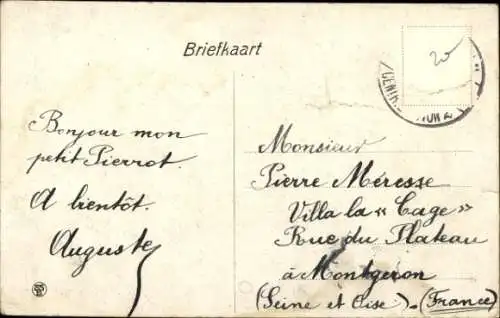 Briefkaart
20
Bonjour mon
petit Pierrot.
A bientôt.
Auguste
Monsieur
Pierre Méresse
Villa la « Cage »
Rue du Plateau
à Montgeron
(Seine et Oise). (France)